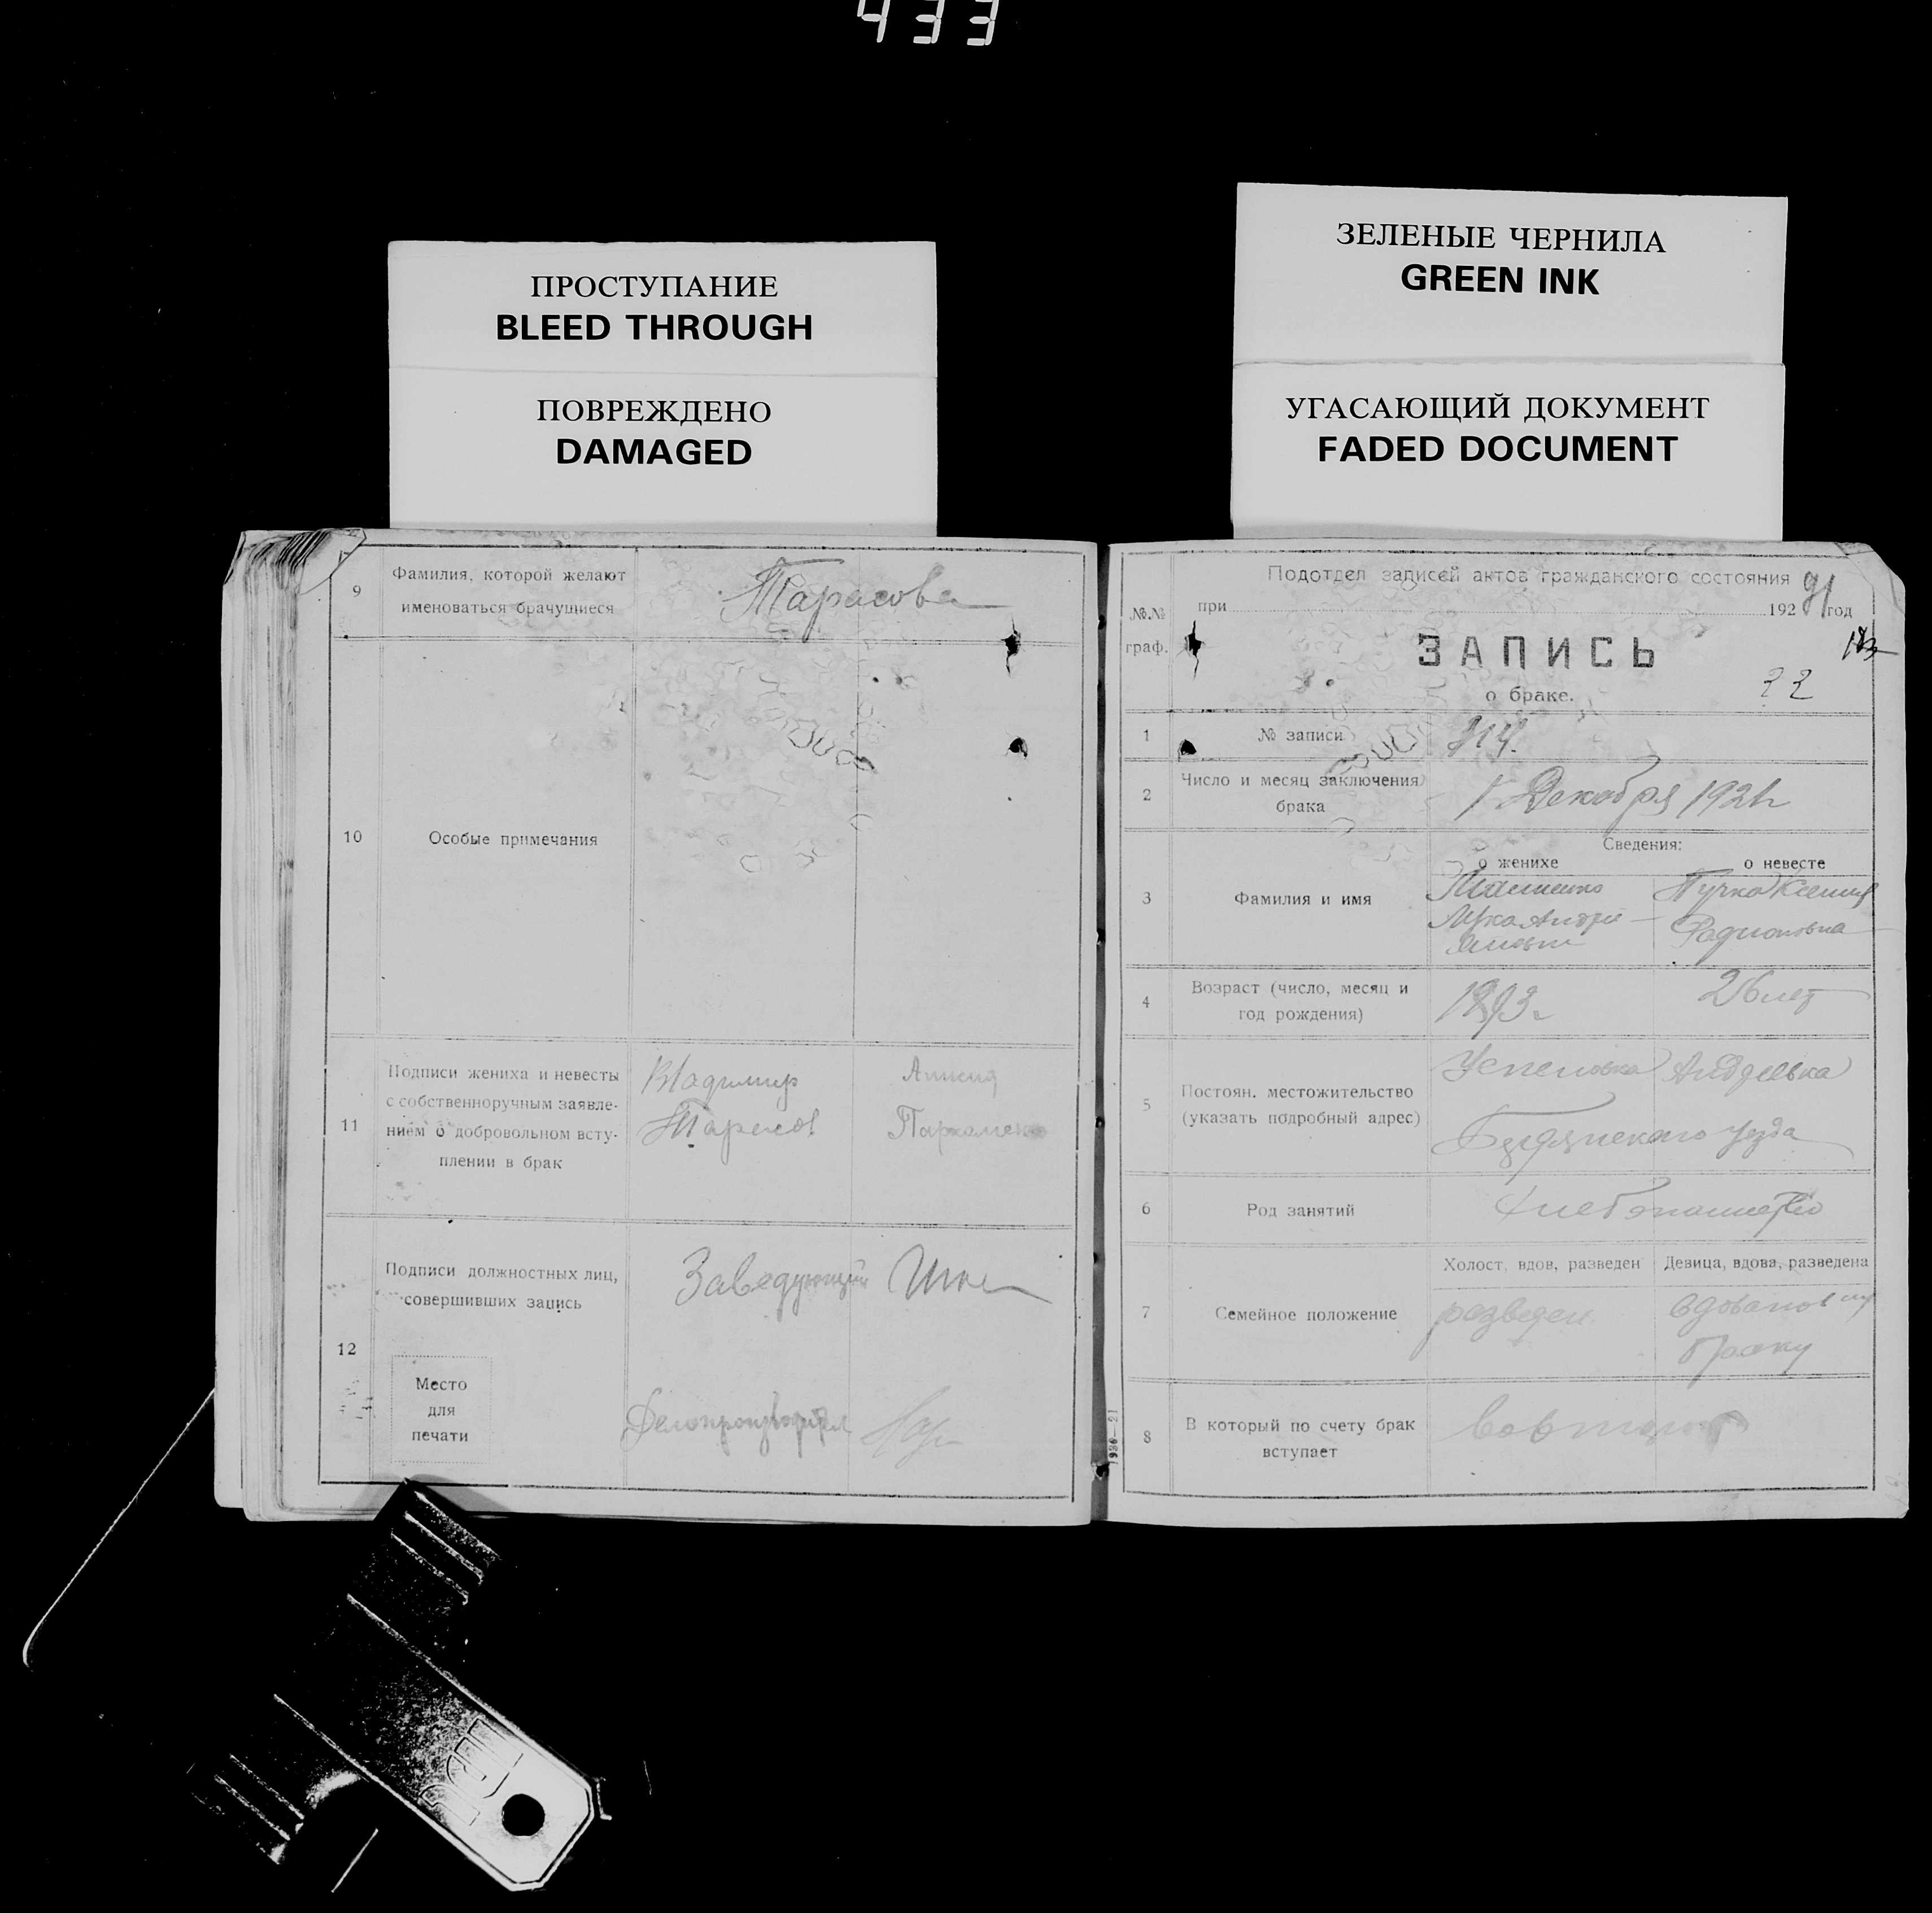 433
ПРОСТУПАНИЕ
BLEED THROUGH
ПОВРЕЖДЕНО
DAMAGED
ЗЕЛЕНЫЕ ЧЕРНИЛА
GREEN INK
УГАСАЮЩИЙ ДОКУМЕНТ
FADED DOCUMENT
9
Фамилия, которой желают
именоваться брачущиеся
Тарасова
10
Особые примечания
11
Подписи жениха и невесты
с собственноручным заявле-
нием о добровольном всту-
плении в брак
Владимир
Тарасов
Пархоменко
12
Подписи должностных лиц,
совершивших запись
Заведующий
Место
для
печати
Делопроизводитель
№.№
граф.
Подотдел записей актов гражданского состояния
при 192 год
ЗАПИСЬ
о браке.
22
1
№ записи
2
Число и месяц заключения
брака
1 Декабря 1921 г
3
Фамилия и имя
Сведения:
о женихе
о невесте
Пучка Ксения
Радионовна
4
Возраст (число, месяц и
год рождения)
1893 г
26 лет
5
Постоян. местожительство
(указать подробный адрес)
Успеновка
Андреевка
Бердянского уезда
6
Род занятий
Хлебопашество
7
Семейное положение
Холост, вдов, разведен
Девица, вдова, разведена
разведен
8
В который по счету брак
вступает
1930—21